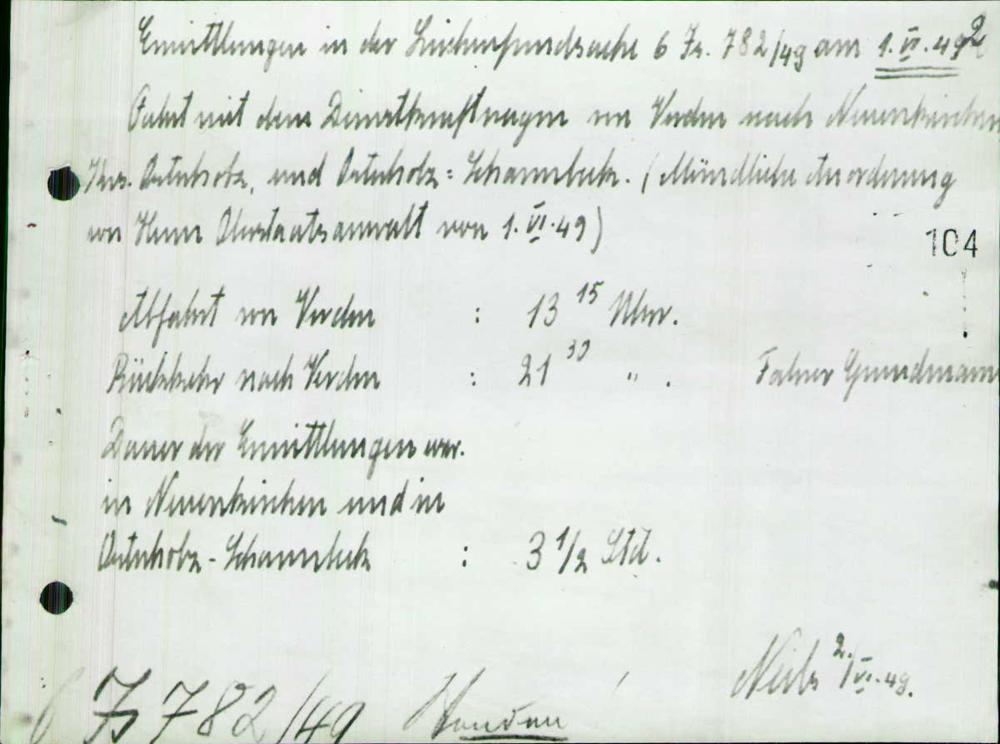 Ermittlungen in der Leichenfundsache 6 Js. 782/49 am 1.VI.49
Fahrt mit dem Dienstkraftwagen von Verden nach Neuenkirchen
Krs. Osterholz, und Osterholz-Scharmbeck. (Mündliche Anordnung
von Herrn Oberstaatsanwalt von 1.VI.49)
104
Abfahrt von Verden : 13 15 Uhr.
Rückkehr nach Verden : 21 30 " . Fahrer Grundmann
Dauer der Ermittlungen war.
in Neuenkirchen und in
Osterholz-Scharmbeck : 3 1/2 Std.
2./VI.49.
6 Js 782/49